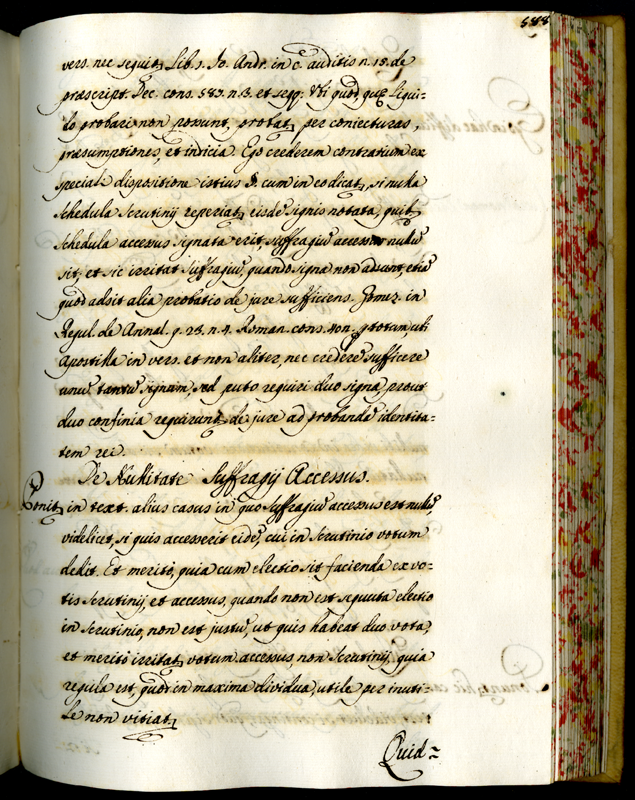 588
vers. nec sequit, Lib. 1. Io. Andr. in c. auditis n. 15. de
præscript. Dec. cons. 583. n. 3. et seqq: Ubi quod quæ liqui-
do probari non possunt, probat, per coniecturas,
præsumptiones, et indicia. Ego crederem contrarium ex
speciali dispositione istius §. cum in eo dicat, si nulla
schedula Scrutinij reperiat, eisdē signis notata, quib,
schedula accessus signata erit, suffragiū accessus nullū
sit, et sic irritat suffragiū, quando signa non adsunt, etiā
quod adsit alia probatio de jure sufficiens. Gomez. in
Regul. de Annal. q. 23. n. 4. Roman. cons. 401. p. totum, ubi
Apostilla in vers. et non aliter, nec crederē sufficere
unū tantū signum, sed puto requiri duo signa, prout
duo confinia requirunt, de jure ad probandā identita-
tem rei.
De Nullitate Suffragij Accessus.
Ponit, in text. alius casus in quo suffragiū accessus est nullū,
videlicet, si quis accesserit eidē, cui in Scrutinio votum
dedit. Et meritò, quia cum electio sit facienda ex vo-
tis Scrutinij et accessus, quando non est sequuta electio
in Scrutinio, non est justū, ut quis habeat duo vota,
et meritò irritat, votum accessus, non Scrutinij, quia
regula est, quod in maxima dividua, utile per inuti-
le non vitiat,
Quid-